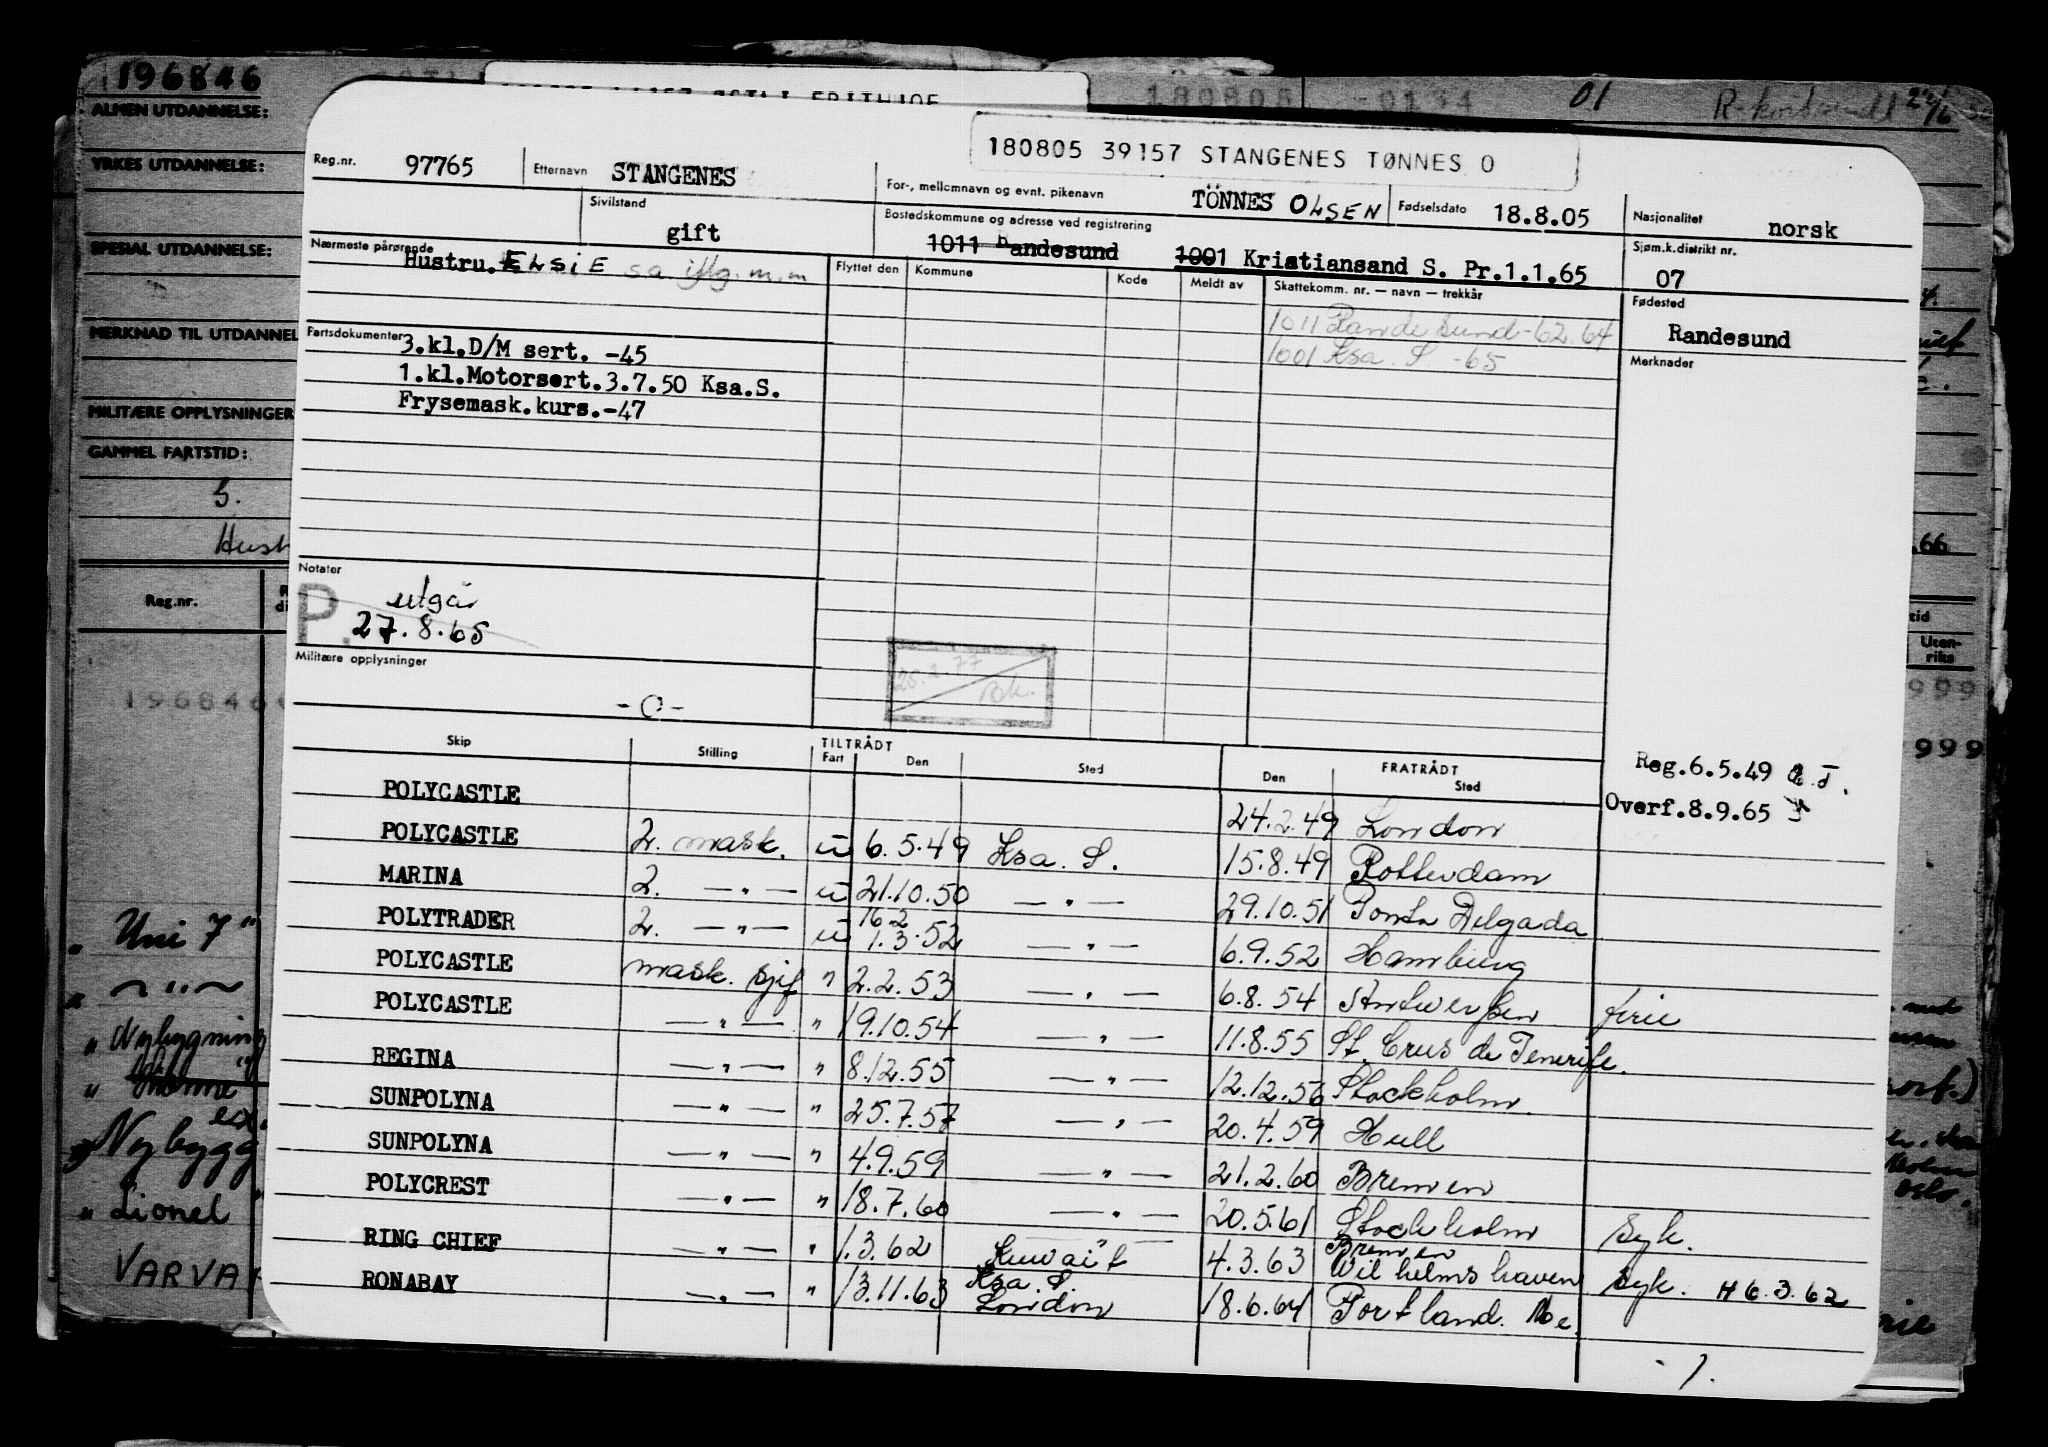 196846
180805 -0134 01
ALMEN UTDANNELSE:
YRKES UTDANNELSE:
SPESIAL UTDANNELSE:
MERKNAD TIL UTDANNEL
MILITÆRE OPPLYSNINGER
GAMMEL FARTSTID:
5.
Hust
Reg.nr.
196846
„ Uni 7"
„ Nybygning
Nybygg
„ Lionel
VARVA
.66
tid
Uten-
riks
999
999
180805 39157 STANGENES TØNNES O
Reg.nr. 97765 Etternavn STANGENES For-, mellomnavn og evnt. pikenavn TÖNNES OLSEN Fødselsdato 18.8.05 Nasjonalitet norsk
Sivilstand gift Bostedskommune og adresse ved registrering 1011 Randesund 1001 Kristiansand S. Pr.1.1.65 Sjøm.k.distrikt nr. 07
Nærmeste pårørende Hustru. ELSIE s.a. iflg. m.m
Flyttet den Kommune Kode Meldt av Skattekomm. nr. — navn — trekkår
1011 Randesund -62.64
1001 Ksa. S -65
Fødested
Randesund
Merknader
Fartsdokumenter 3.kl.D/M sert. -45
1.kl.Motorsert.3.7.50 Ksa.S.
Frysemask.kurs.-47
Notater
P. utgår
27.8.65
Militære opplysninger
-O-
25.2.77
Reg.6.5.49
Overf.8.9.65
TILTRÅDT FRATRÅDT
Skip Stilling Fart Den Sted Den Sted
POLYCASTLE 24.2.49 London
POLYCASTLE 2. mask. u 6.5.49 Ksa. S. 15.8.49 Rotterdam
MARINA 2. — „ — u 21.10.50 — „ — 29.10.51 Ponta Delgada
POLYTRADER 2. — „ — u 16.2 1.3.52 — „ — 6.9.52 Hamburg
POLYCASTLE mask. sjef „ 2.2.53 — „ — 6.8.54 Antwerpen ferie
POLYCASTLE — „ — „ 19.10.54 — „ — 11.8.55 St. Crus de Tenerife.
REGINA — „ — „ 8.12.55 — „ — 12.12.56 Stockholm.
SUNPOLYNA — „ — „ 25.7.57 — „ — 20.4.59 Hull
SUNPOLYNA — „ — „ 4.9.59 — „ — 21.2.60 Bremen
POLYCREST — „ — „ 18.7.60 — „ — 20.5.61 Stockholm syk.
RING CHIEF — „ — „ 1.3.62 Kuwait 4.3.63 Bremen Wilhelmshaven syk. H 6.3.62
RONABAY — „ — „ 13.11.63 Ksa. S London 18.6.64 Portland. Me.